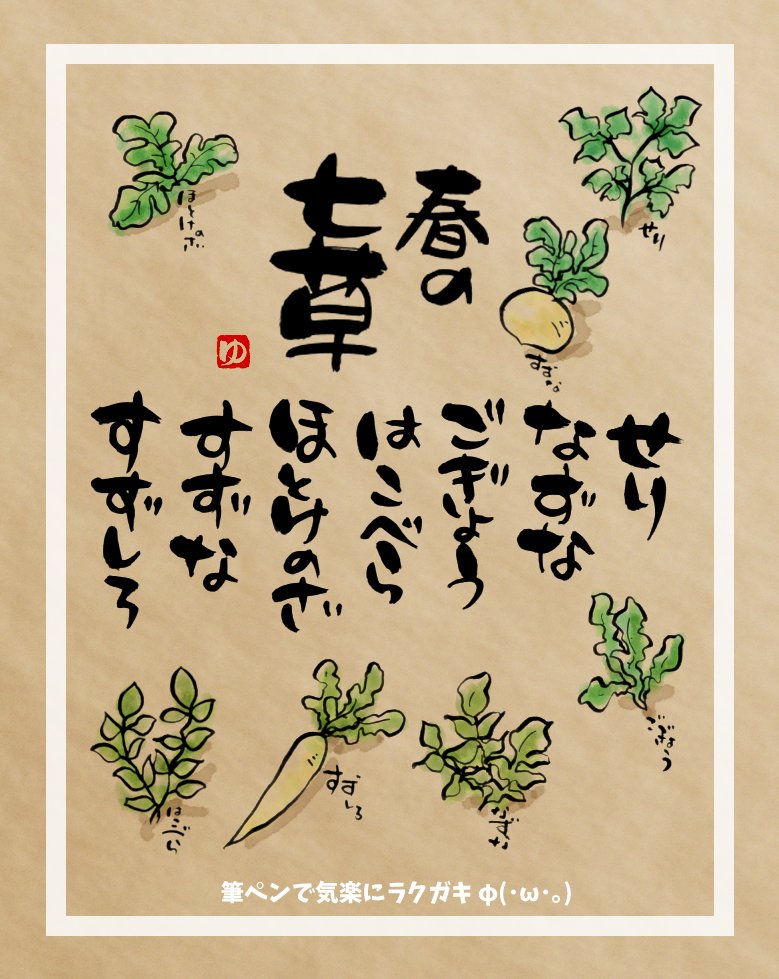 春の
七草
ゆ
せり
なずな
ごぎょう
はこべら
ほとけのざ
すずな
すずしろ
せり
すずな
ほとけのざ
ごぎょう
なずな
すずしろ
はこべら
筆ペンで気楽にラクガキ φ(･ω･｡)